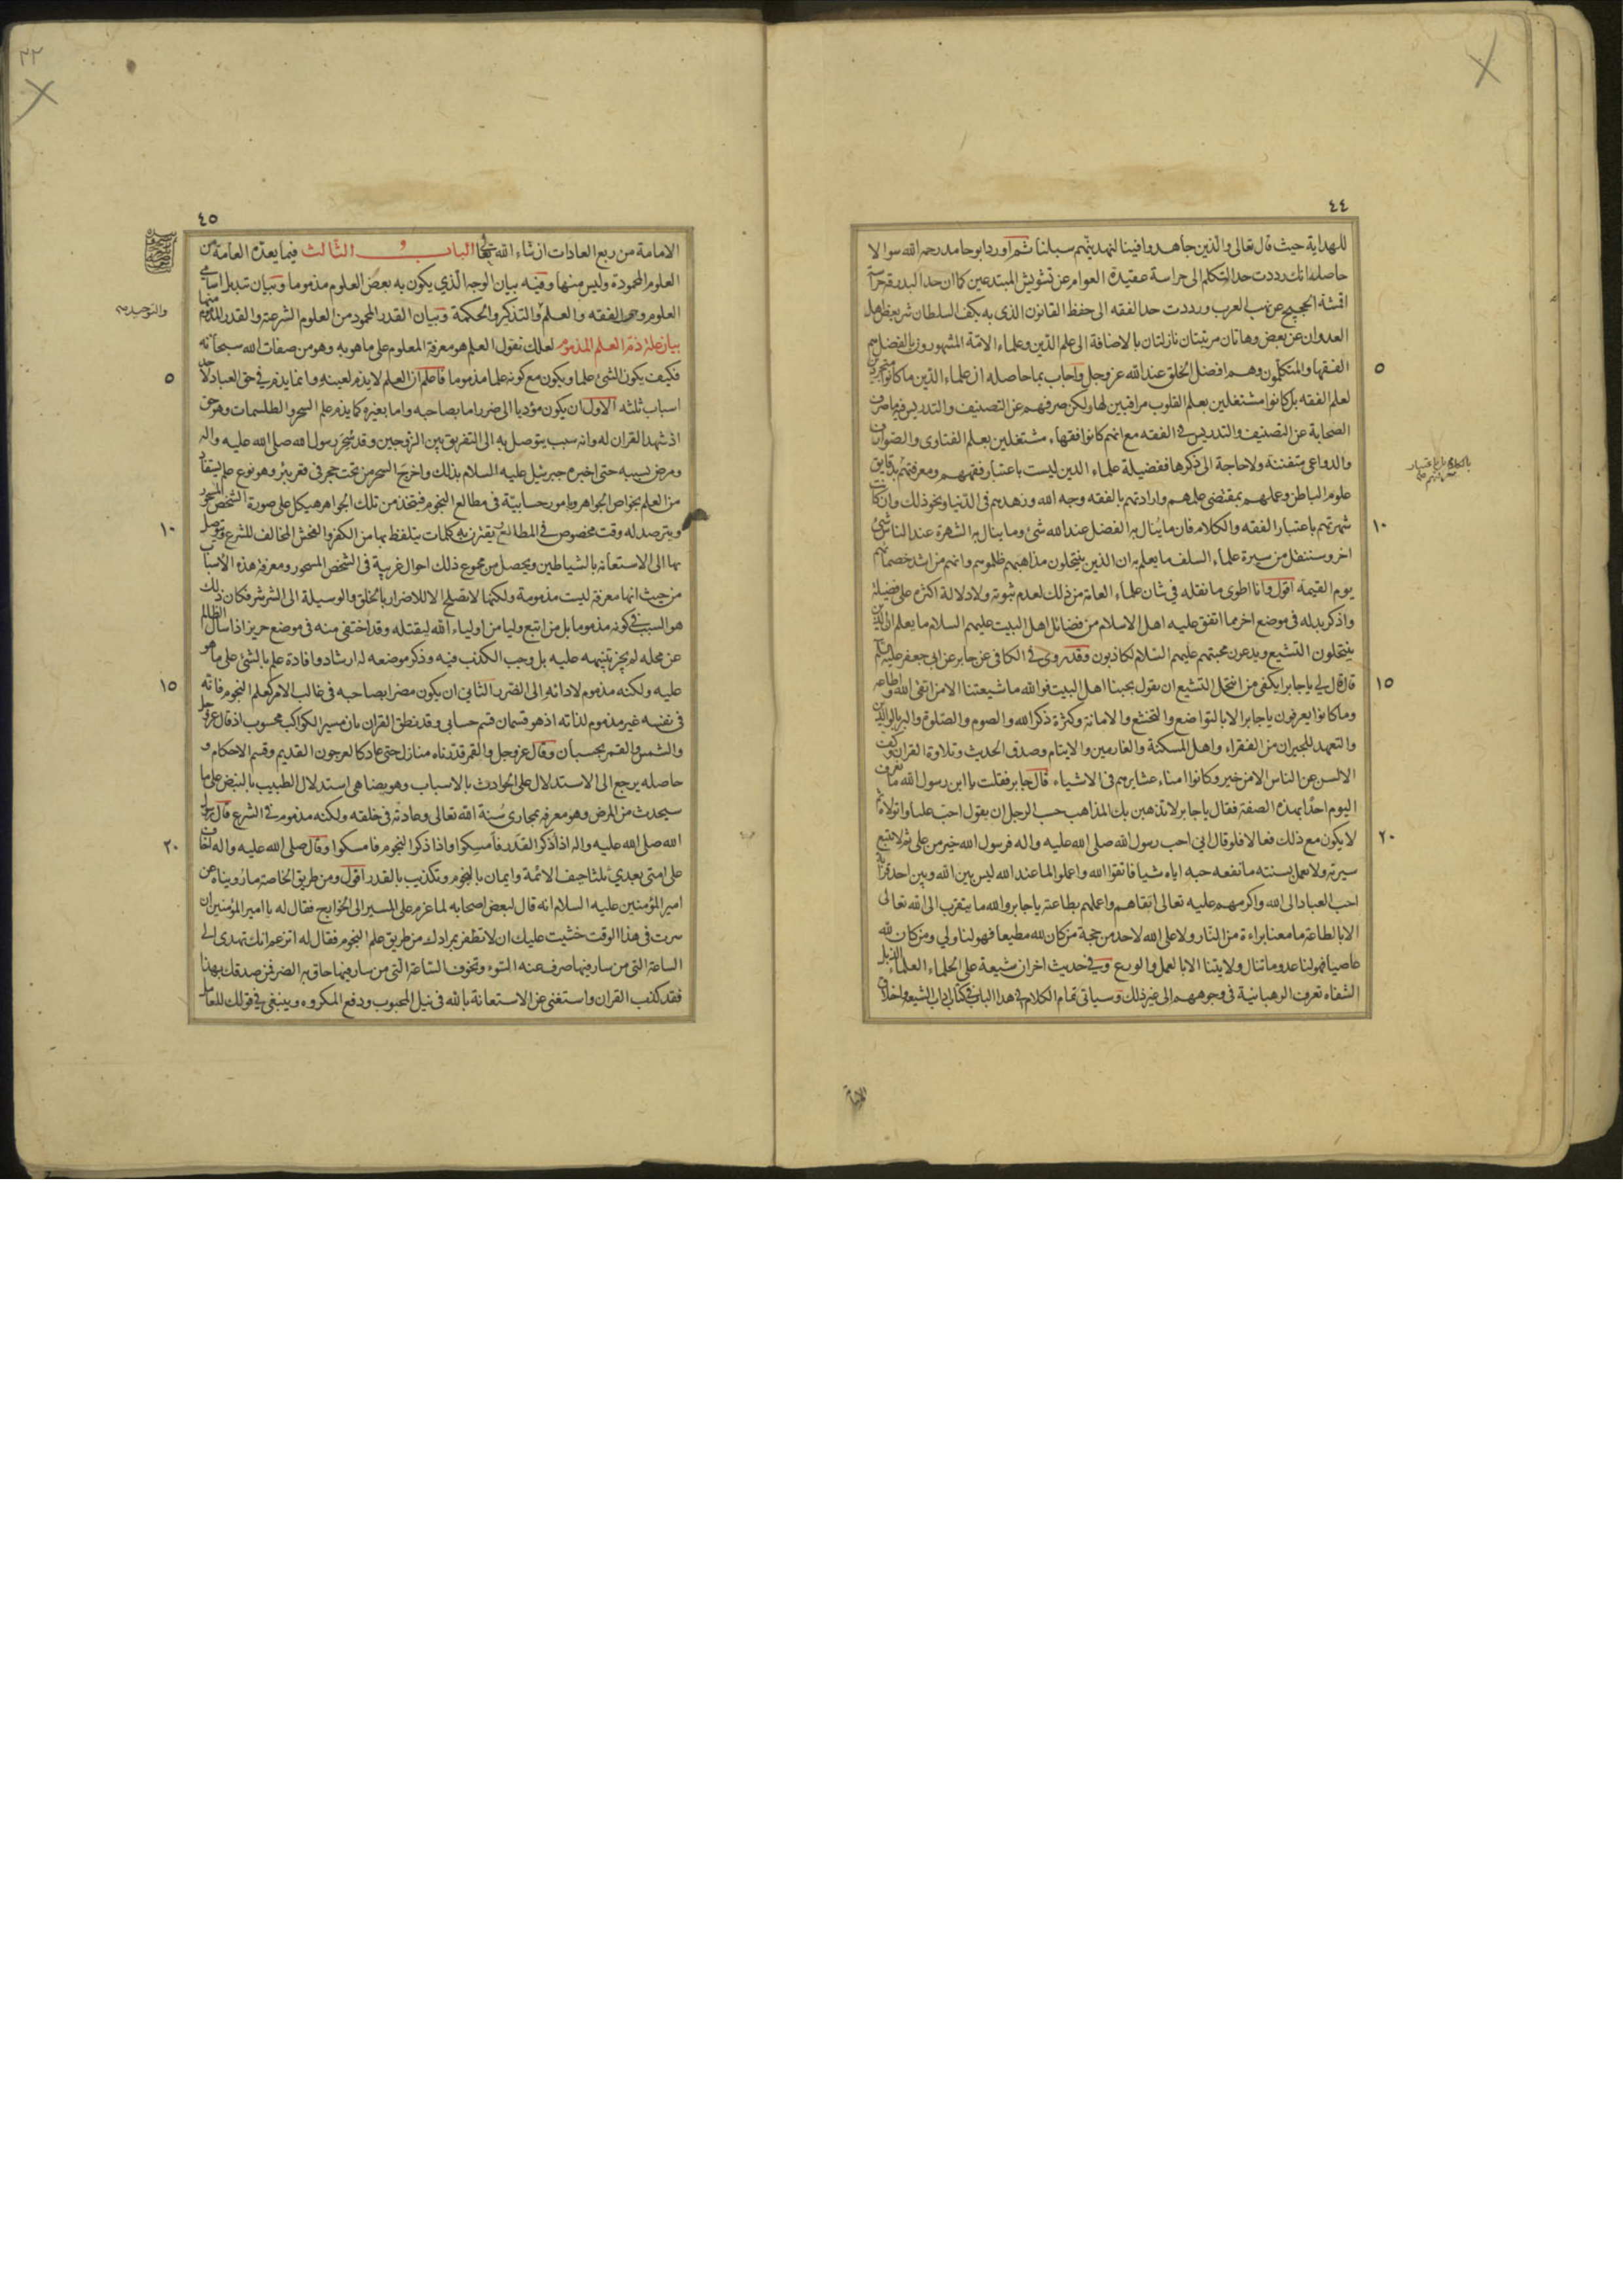 ٤٤
للهداية حيث قال تعالى والذين جاهدوا فينا لنهدينهم سبلنا ثم اورد ابو حامد رحمه الله سوالا
حاصله انك رددت حد المتكلم الى حراسة عقيدة العوام عن تشويش المبتدعين كما ان حد البدرقة حراسة
اقمشة الحجيج عن نهب العرب ورددت حد الفقه الى حفظ القانون الذي به يكف السلطان شر بعض اهل
العدوان عن بعض وهاتان مرتبتان نازلتان بالاضافة الى علم الدين وعلماء الامة المشهورون بالفضل هم
الفقهاء والمتكلمون وهم افضل الخلق عند الله عز وجل واجاب بما حاصله ان علماء الذين ما كانوا متجردين
٥
لعلم الفقه بل كانوا مشتغلين بعلم القلوب مراقبين لها ولكن صرفهم عن التصنيف والتدريس فيه ما صرف
الصحابة عن التصنيف والتدريس في الفقه مع انهم كانوا فقهاء مشتغلين بعلم الفتاوى والصوارف
والدواعي متفننة ولا حاجة الى ذكرها ففضيلة علماء الدين ليست باعتبار فقههم ومعرفتهم بدقايق
علوم الباطن وعملهم بمقتضى علمهم وارادتهم بالفقه وجه الله وزهدهم في الدنيا ونحو ذلك وان كانت
شهرتهم باعتبار الفقه والكلام فان ما ينال به الفضل عند الله شئ وما ينال به الشهرة عند الناس شئ
١٠
اخر وسننقل من سيرة علماء السلف ما يعلم به ان الذين ينتحلون مذاهبهم ظلموهم وانهم من اشد خصمائهم
يوم القيمة اقول وانا اطوى ما نقله في شان علماء العامة من ذلك لعدم ثبوته ولا دلالة اكثره على فضيلة
واذكر بدله في موضع اخر مما اتفق عليه اهل الاسلام من فضائل اهل البيت عليهم السلام ما يعلم ان الذين
ينتحلون التشيع ويدعون محبتهم عليهم السلام لكاذبون وقد روى في الكافي عن جابر عن ابي جعفر عليه السلم
قال قال لي يا جابر ايكتفي من انتحل التشيع ان يقول بحبنا اهل البيت فوالله ما شيعتنا الا من اتقى الله واطاعه
١٥
وما كانوا يعرفون يا جابر الا بالتواضع والتخشع والامانة وكثرة ذكر الله والصوم والصلوة والبر بالوالدين
والتعهد للجيران من الفقراء واهل المسكنة والغارمين والايتام وصدق الحديث وتلاوة القران وكف
الالسن عن الناس الا من خير وكانوا امناء عشايرهم في الاشياء قال جابر فقلت يا ابن رسول الله ما نعرف
اليوم احدا بهذه الصفة فقال يا جابر لا تذهبن بك المذاهب حسب الرجل ان يقول احب عليا واتولاه ثم
لا يكون مع ذلك فعالا فلو قال اني احب رسول الله صلى الله عليه واله فرسول الله خير من علي ثم لا يتبع
٢٠
سيرته ولا يعمل بسنته ما نفعه حبه اياه شيا فاتقوا الله واعملوا لما عند الله ليس بين الله وبين احد قرابة
احب العباد الى الله واكرمهم عليه تعالى اتقاهم واعملهم بطاعته يا جابر والله ما يتقرب الى الله تعالى
الا بالطاعة ما معنا براءة من النار ولا على الله لاحد من حجة من كان لله مطيعا فهو لنا ولي ومن كان لله
عاصيا فهو لنا عدو وما تنال ولايتنا الا بالعمل والورع وفي حديث اخر ان شيعة علي الحلماء العلماء الذبل
الشفاه تعرف الرهبانية في وجوههم الى غير ذلك وسياتي تمام الكلام في هذا الباب في كتاب اداب الشيعة واخلاق
الامامة
٤٥
الامامة من ربع العادات ان شاء الله تعالى الباب الثالث فيما يعده العامة من
العلوم المحمودة وليس منها وفيه بيان الوجه الذي يكون به بعض العلوم مذموما وبيان تبديل اسامي
العلوم وهو الفقه والعلم والتذكير والحكمة وبيان القدر المحمود من العلوم الشرعية والقدر المذموم منها
والتوحيد صح
بيان علة ذم العلم المذموم لعلك تقول العلم هو معرفة المعلوم على ما هو به وهو من صفات الله سبحانه
فكيف يكون الشئ علما ويكون مع كونه علما مذموما فاعلم ان العلم لا يذم لعينه وانما يذم في حق العباد لاحد
٥
اسباب ثلثه الاول ان يكون مؤديا الى ضرر اما بصاحبه واما بغيره كما يذم علم السحر والطلسمات وهو حق
اذ شهد القران له وانه سبب يتوصل به الى التفريق بين الزوجين وقد سحر رسول الله صلى الله عليه واله
ومرض بسببه حتى اخبره جبرئيل عليه السلام بذلك واخرج السحر من تحت حجر في قعر بئر وهو نوع علم يستفاد
من العلم بخواص الجواهر وبامور حسابية في مطالع النجوم فيتخذ من تلك الجواهر هيكل على صورة الشخص المسحور
ويترصد له وقت مخصوص في المطالع تقترن به كلمات يتلفظ بها من الكفر والفحش المخالف للشرع ويتوصل
١٠
بها الى الاستعانة بالشياطين ويحصل من مجموع ذلك احوال غريبة في الشخص المسحور ومعرفة هذه الاسباب
من حيث انها معرفة ليست مذمومة ولكنها لا تصلح الا للاضرار بالخلق والوسيلة الى الشر شر فكان ذلك
هو السبب في كونه مذموما بل من اتبع وليا من اولياء الله ليقتله وقد اختفى منه في موضع حريز اذا سال الظالم
عن محله لم يجز تنبيهه عليه بل وجب الكذب فيه وذكر موضعه له ارشاد وافادة علم بالشئ على ما هو
عليه ولكنه مذموم لادائه الى الضرر الثاني ان يكون مضرا بصاحبه في غالب الامر كعلم النجوم فانه
١٥
في نفسه غير مذموم لذاته اذ هو قسمان قسم حسابي وقد نطق القران بان مسير الكواكب محسوب اذ قال عز وجل
والشمس والقمر بحسبان وقال عز وجل والقمر قدرناه منازل حتى عاد كالعرجون القديم وقسم الاحكام و
حاصله يرجع الى الاستدلال على الحوادث بالاسباب وهو يضاهي استدلال الطبيب بالنبض على ما
سيحدث من المرض وهو معرفة بمجارى سنة الله تعالى وعادته في خلقه ولكنه مذموم في الشرع قال رسول
الله صلى الله عليه واله اذا ذكر القدر فامسكوا واذا ذكر النجوم فامسكوا وقال صلى الله عليه واله اخاف
٢٠
على امتي بعدي ثلثا حيف الائمة وايمان بالنجوم وتكذيب بالقدر اقول ومن طريق الخاصة ما رويناه عن
امير المؤمنين عليه السلام انه قال لبعض اصحابه لما عزم على المسير الى الخوارج فقال له يا امير المؤمنين ان
سرت في هذا الوقت خشيت عليك ان لا تظفر بمرادك من طريق علم النجوم فقال له اتزعم انك تهدى الى
الساعة التي من سار فيها صرف عنه السوء وتخوف الساعة التي من سار فيها حاق به الضر فمن صدقك بهذا
فقد كذب القران واستغنى عن الاستعانة بالله في نيل المحبوب ودفع المكروه وينبغي في قولك للعامل